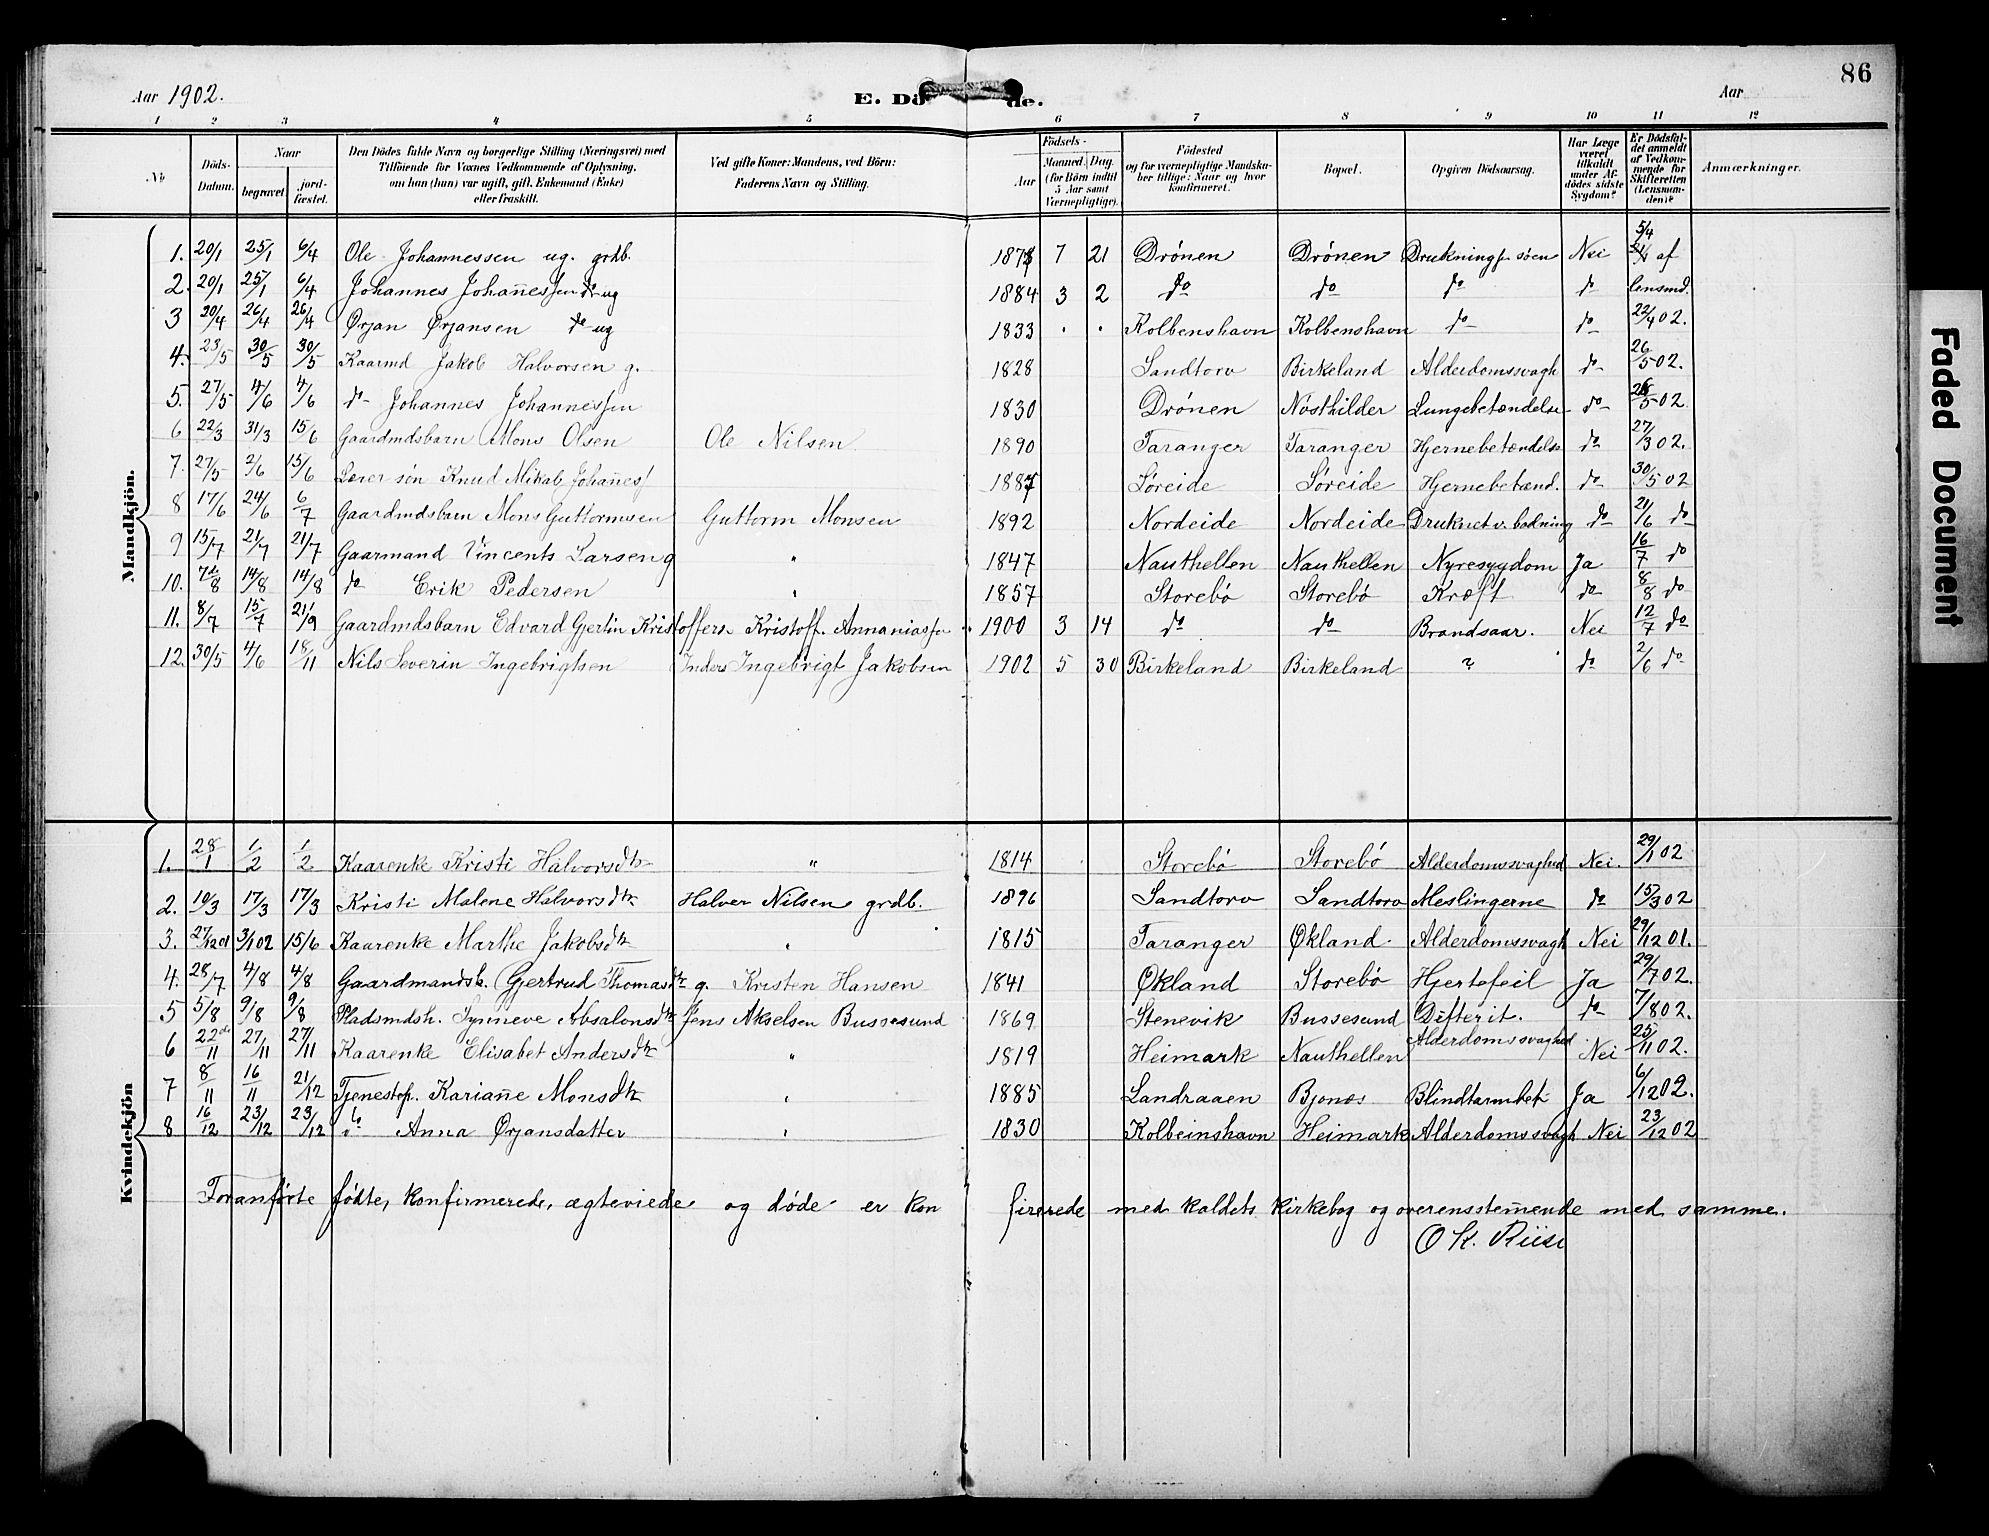 86
Aar 1902.
E. Dö de.
Aar
1 2 3 4 5 6 7 8 9 10 11 12
No Döds-Datum. Naar begravet jordfæstet. Den Dödes fulde Navn og borgerlige Stilling (Næringsvei) med Tilföiende for Voxnes Vedkommende af Oplysning, om han (hun) var ugift, gift, Enkemand (Enke) eller fraskilt. Ved gifte Koner: Mandens, ved Börn: Faderens Navn og Stilling. Födsels- Aar Maaned. Dag. (for Börn indtil 5 Aar samt Værnepligtige). Födested og for værnepligtige Mandskaber tillige: Naar og hvor Konfirmeret. Bopæl. Opgiven Dödsaarsag. Har Læge været tilkaldt under Afdödes sidste Sygdom? Er Dödsfaldet anmeldt af Vedkommende for Skifteretten (Lensmanden)? Anmærkninger.
Mandkjön.
1. 20/1 25/1 6/4 Ole Johannessen ug. grdb. 1878 7 21 Drönen Drönen Drukning p. søen Nei 5/4 af
2. 20/1 25/1 6/4 Johannes Johannessen do ug 1884 3 2 do do do do lensmd.
3 20/4 26/4 26/4 Ørjan Ørjansen do ug 1833 . . Kolbenshavn Kolbenshavn do do 22/4 02.
4. 23/5 30/5 30/5 Kaarmd Jakob Halvorsen g. 1828 Sandtorv Birkeland Alderdomssvagh do 26/5 02.
5. 27/5 4/6 4/6 do Johannes Johannessen 1830 Drönen Nøsthilder Lungebetændelse do 28/5 02
6 22/3 31/3 15/6 Gaardmdsbarn Mons Olsen Ole Nilsen 1890 Taranger Taranger Hjernebetændelse do 27/3 02.
7. 27/5 2/6 15/6 Lærer søn Knud Mikal Johannes 1887 Søreide Søreide Hjernebetænd. do 30/5 02
8 17/6 24/6 6/7 Gaardmdsbarn Mons Guttormsen Guttorm Monsen 1892 Nordeide Nordeide Druknet v. badning do 21/6 do
9 15/7 21/7 21/7 Gaarmand Vincents Larsen g " 1847 Nauthellen Nauthellen Nyresygdom Ja 16/7 do
10. 7de/8 14/8 14/8 do Erik Pedersen " 1857 Storebö Storebö Kræft do 8/8 do
11. 8/7 15/7 21/9 Gaardmdsbarn Edvard Gjertin Kristoffers. Kristoff. Annaniassen 1900 3 14 do do Brandsaar. Nei 12/7 do
12. 30/5 4/6 18/11 Nils Severin Ingebrigtsen Inders Ingebrigt Jakobsen 1902 5 30 Birkeland Birkeland ? do 2/6 do
Kvindekjön
1. 28/1 1/2 1/2 Kaarenke Kristi Halvorsdtr " 1814 Storebö Storebö Alderdomssvaghed Nei. 29/1 02
2. 10/3 17/3 17/3 Kristi Malene Halvorsdtr Halver Nilsen grdb. 1896 Sandtorv Sandtorv Meslingerne do 15/3 02
3. 27/12 01 3/1 02 15/6 Kaarenke Marthe Jakobsdtr " 1815 Taranger Økland Alderdomssvagh Nei 29/12 01.
4. 28/7 4/8 4/8 Gaardmandsk. Gjertrud Thomasdtr g. Kristen Hansen 1841 Økland Storebö Hjertefeil Ja 29/7 02.
5 5/8 9/8 9/8 Pladsmdsh. Synneve Absalonsdtr Jens Akselsen Bussesund 1869 Stenevik Bussesund Difterit. do 7/8 02.
6 22de/11 27/11 27/11 Kaarenke Elisabet Andersdtr " 1819 Heimark Nauthellen Alderdomssvaghed Nei 25/11 02.
7 8/11 16/11 21/12 Tjenestep. Karianne Monsdtr " 1885 Landraaen Bjonæs Blindtarmbet Ja 6/12 02.
8 16/12 23/12 23/12 do Anna Ørjansdatter " 1830 Kolbeinshavn Heimark Alderdomssvagh Nei 23/12 02
Foranførte fødte, konfirmerede, ægteviede og døde er kon firerede med kaldets kirkebog og overensstemmende med samme.
O K. Riise
Faded Document